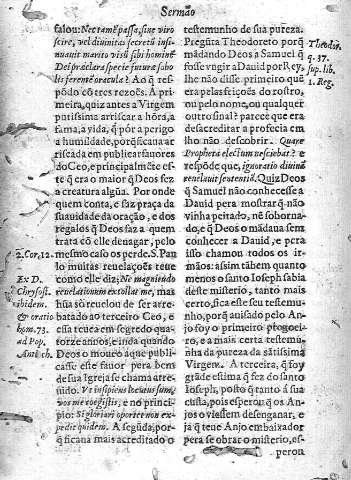 Sermão
falou: Nec tamē passa, sine viro
scire, vel diuinitas secretū insi-
nuauit marito visū sibi homine
Dei præclara specie futuræ sobo
lis
oracula? Ao q̃ res-
põdo cō tres rezões. A pri-
meira, quiz antes a Virgem
purissima arriscar a hōra, a
fama, a vida, q̃ pór a perigo
a humildade, porq̃ ficaua ar
riscada em publicar fauores
do Ceo, e principalmēte es-
te q̃ era o maior q̃ Deos fez
a creatura algũa. Por onde
quem conta, e faz praça da
suauidade da oração, e dos
regalos q̃ Deos faz a quem
trata cō elle denagar, pelo
mesmo caso os perde. S. Pau
lo muitas reuelaçoēs teue
como elle diz; Ne magnitudo
reuelationum extollat me, mas
hũa só reuelou de ser arre-
batado ao terceiro Ceo, e
essa teue a em segredo qua-
torze annos, e inda quando
Deos o moueo a que publi-
casse este fauor pera bem
de sua Igreja se chama atre-
uido. Vt insipiens locutus sum,
vos me coegistis, e no princi-
pio: Si gloriari oportet non ex-
pedit quidem. A segūda, por-
q̃ ficana mais acreditado o
2. Cor. 12.
Ex D.
Chrysost.
ibidem.
& oratio
hom. 73.
ad Pop.
Anti ch.
testemunho de sua pureza.
Pregūta Theodoreto porq̃
mādando Deos a Samuel q̃
fosse vngir a Dauid por Rey,
lhe não disse primeiro quē
era pelas feições do rostro,
ou pelo nome, ou qualquer
outro sinal? parece que era
desacreditar a profecia em
lho não descobrir. Quare
Propheta electum nesciebat? e
respōde que, ignoratio diuinā
reuelauit sententiā. Quiz Deos
q̃ Samuel não conhecesse a
Dauid pera mostrar q̃ não
vinha peitado, nē soborna-
do, e q̃ Deos o mādaua sem
conhecer a Dauid, e pera
isso chamou todos os ir-
mãos: assim tābem quanto
menos o santo Ioseph sabia
deste misterio, tanto mais
certo, fica este seu testemu-
nho, porq̃ auisado pelo An-
jo foy o primeiro pregoei-
ro, e a mais certa testemu-
nha da pureza da sātissima
Virgem. A terceira, q̃ foy
grāde estima q̃ fez do santo
Ioseph, posto q̃ tanto á sua
custa, pois esperou q̃ os An-
jos o viessem desenganar, e
ja q̃ teue Anjo embaixador
pera se obrar o misterio, es-
perou
Theodor.
q. 37.
sup. lib.
1. Reg.